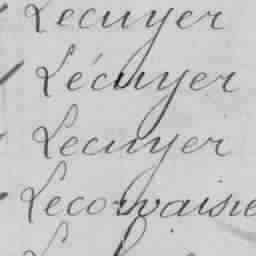 Lecuyer
Lécuyer
Lecuyer
Lecorvaisie